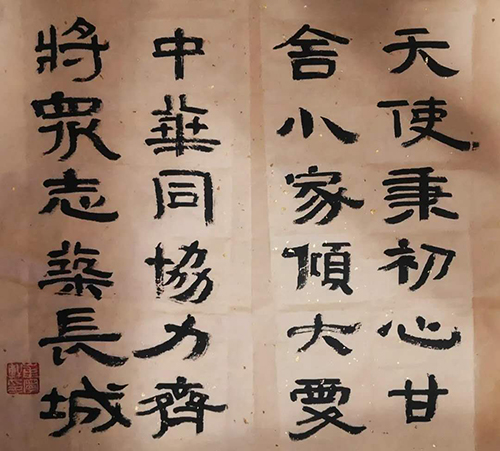 天使秉初心甘
舍小家傾大愛
中華同協力齊
將眾志築長城